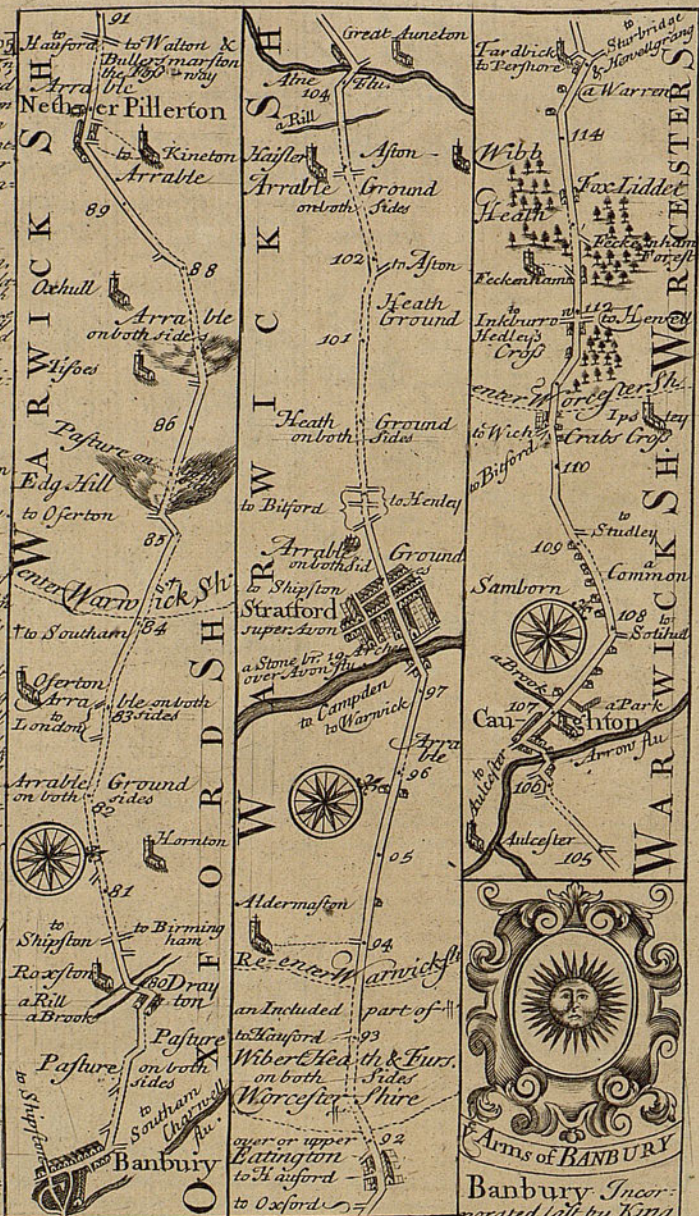 91
to
Hauford
to Walton &
Bullersmarston
the Foss way
Arra ble
Nether Pillerton
to Kineton
Arrable
89
88
Oxhull
Arra ble
on both sides
Tifoes
86
Pasture on
Edg Hill
to Oferton
85
enter Warwick Sh.
to Southam
84
Oferton
Arra ble on both
83 sides
to
London
Arrable Ground
on both sides
82
Hornton
81
to
Shipston
to Birming
ham
Roxston
80 Dray
ton
a Rill
a Brook
Pasture
Pasture on both
sides
to Shipston
to
Southam
Charwell
flu.
Banbury
WARWICK SH
OXFORD SH
Great Auneton
Alne
Flu.
104
a Rill
Haisler
Aston
Arrable Ground
on both Sides
102
to Aston
Heath
Ground
101
Heath Ground
on both Sides
to Bitford
to Henley
Arrable Ground
on both sid es
to Shipston
Stratford
super Avon
a Stone br. 19 Arches
over Avon flu.
to Campden
to Warwick
97
Arra
ble
96
05
Aldermaston
94
Re-enter Warwick sh
an Included part of
to Hauford
93
Wibert Heath & Furs.
on both Sides
Worcester Shire
over or upper
92
Eatington
to Hauford
to Oxford
WARWICK SH
to
Sturbridge
& Hewellgrang
Tardbick
to Pershore
a Warren
114
Wibb
Heath
Fox Liddet
Feckenham
Forest
Feckenham
112
to
Inkburro
to Hewell
Hedley's
Cross
enter Worcester Sh.
Ips ley
to Wich
Crabs Cross
to Bitford
110
to
Studley
109
a
Common
Samborn
108
to
Solihul
a Brook
107
a Park
Cau- ghton
Arrow flu
to Aulcester
106
Aulcester
105
WORCESTER S
WARWICK SH.
Arms of BANBURY
Banbury Incor-
porated last by King